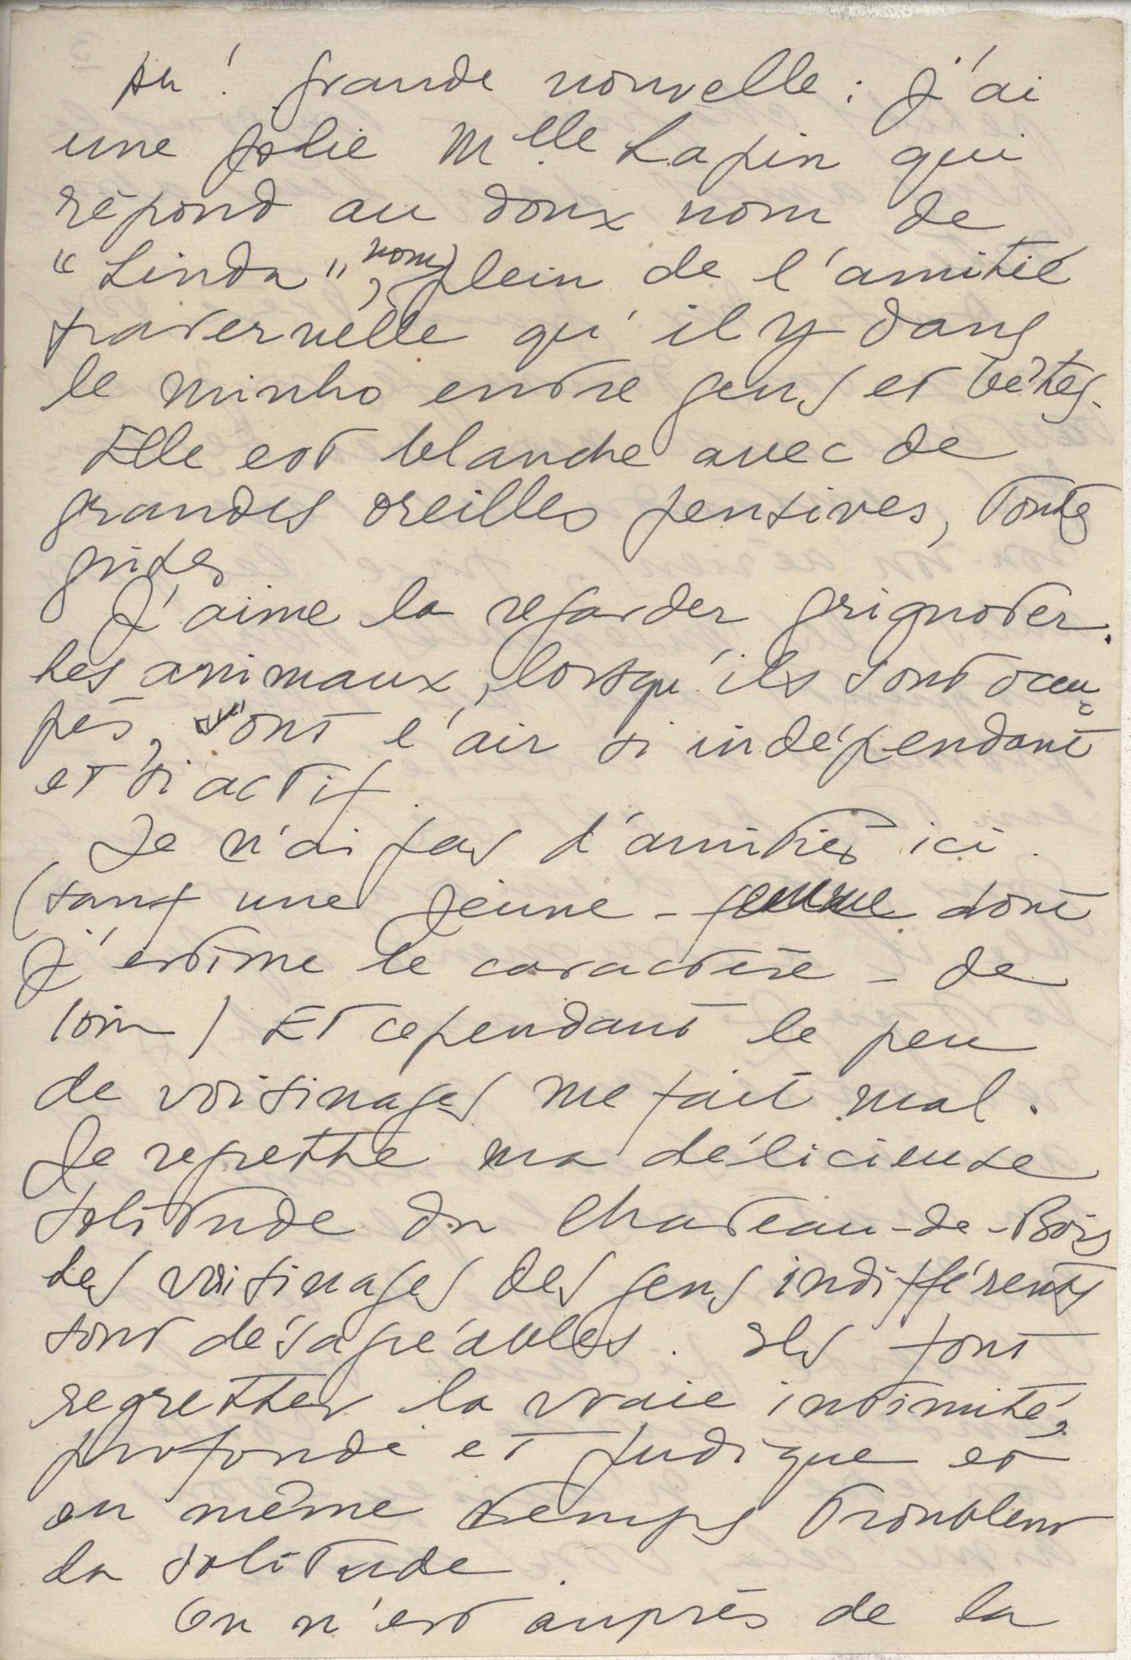 Ah ! grande nouvelle : j'ai
une jolie Mlle Lapin qui
répond au doux nom de
"Linda", nom plein de l'amitié
fraternelle qu'il y dans
le minho entre gens et bêtes.
Elle est blanche avec de
grandes oreilles pensives, toutes
grises
J'aime la regarder grignoter.
Les animaux, lorsqu'ils sont occu
pés, ont l'air si indépendant
et si actif
Je n'ai pas d'amitiés ici.
(sauf une jeune - femme dont
j'estime le caractère - de
loin) Et cependant le peu
de voisinages me fait mal.
Je regrette ma délicieuse
solitude du Chateau-de-Bois
Les voisinages des gens indifférents
sont désagréables. Ils font
regretter la vraie intimité,
profonde et pudique et
en même temps troublent
la solitude.
On n'est auprès de la